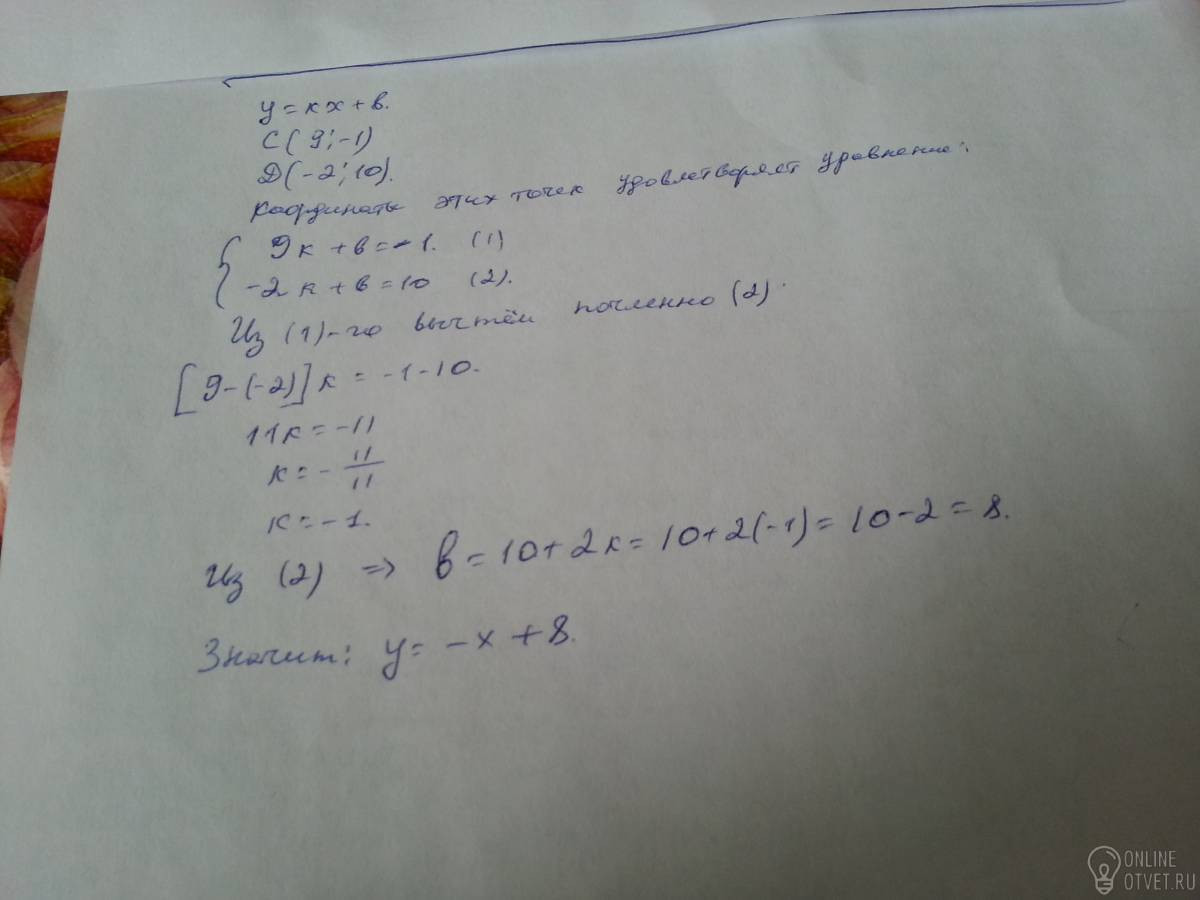 y = кx + в.
С( 9; -1)
D(-2; 10).
Координаты этих точек удовлетворяет уравнение:
{ 9к + в = -1. (1)
-2к + в = 10 (2).
Из (1)-го вычтем почленно (2).
[9-(-2)]к = -1-10.
11к = -11
к = - 11/11
к = -1.
Из (2) => в = 10 + 2к = 10+2(-1) = 10-2 = 8.
Значит: y = -x + 8.
ONLINE
OTVET.RU